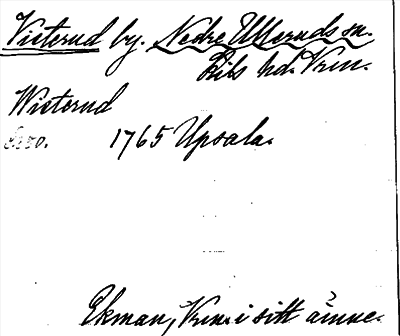 Visterud by. Nedre Ulleruds sn.
Kils hd. Vrm.
Wisterud
1765 Upsala.
Ekman, Vrm. i sitt ämne.